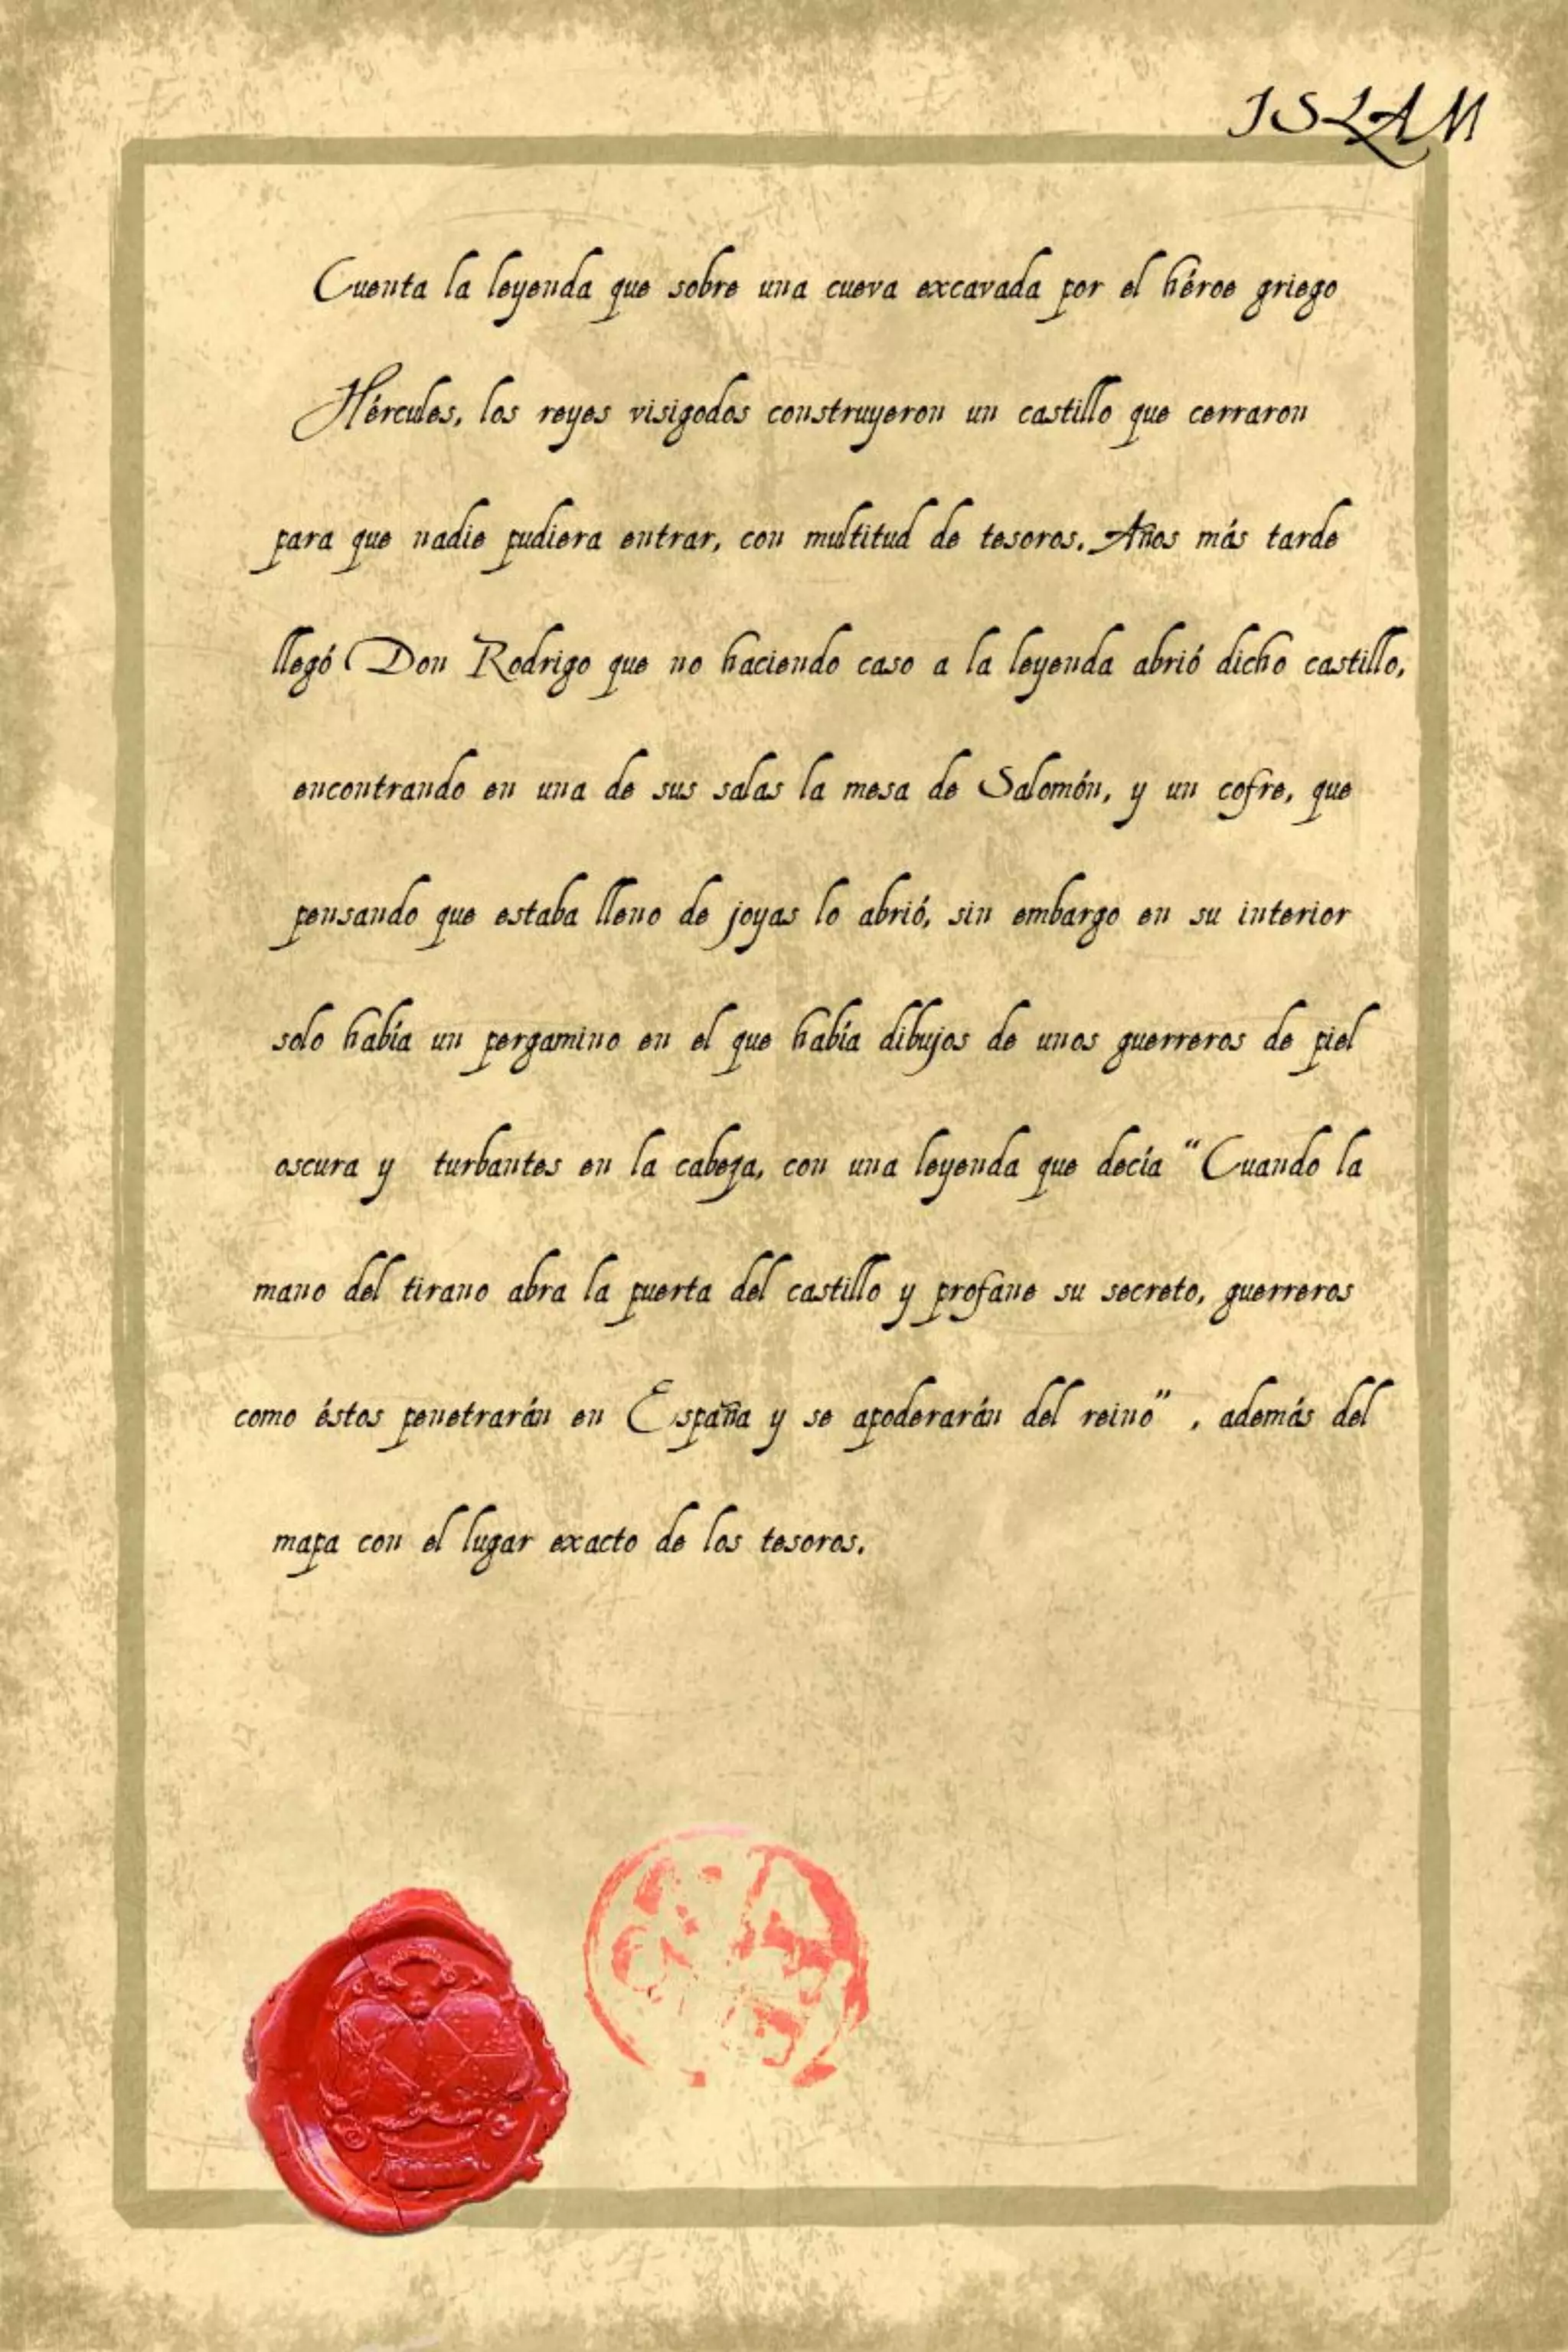 ISLAM
Cuenta la leyenda que sobre una cueva excavada por el héroe griego
Hércules, los reyes visigodos construyeron un castillo que cerraron
para que nadie pudiera entrar, con multitud de tesoros. Años más tarde
llegó Don Rodrigo que no haciendo caso a la leyenda abrió dicho castillo,
encontrando en una de sus salas la mesa de Salomón, y un cofre, que
pensando que estaba lleno de joyas lo abrió, sin embargo en su interior
solo había un pergamino en el que había dibujos de unos guerreros de piel
oscura y turbantes en la cabeza, con una leyenda que decía “Cuando la
mano del tirano abra la puerta del castillo y profane su secreto, guerreros
como éstos penetrarán en España y se apoderarán del reino” , además del
mapa con el lugar exacto de los tesoros.